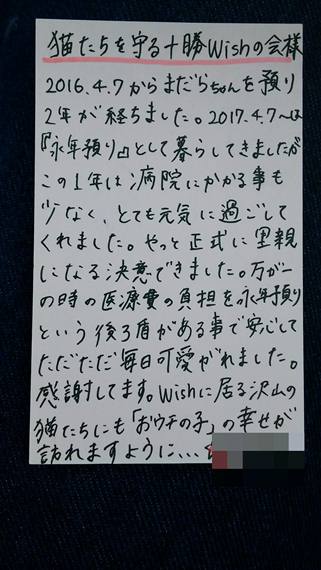 猫たちを守る十勝Wishの会様
2016.4.7からまだらちゃんを預り
2年が経ちました。2017.4.7〜は
『永年預り』として暮らしてきましたが
この1年は病院にかかる事も
少なく、とても元気に過ごして
くれました。やっと正式に里親
になる決意できました。万が一
の時の医療費の負担を永年預り
という後ろ盾がある事で安心して
ただただ毎日可愛がれました。
感謝してます。Wishに居る沢山の
猫たちにも「おウチの子」の幸せが
訪れますように...